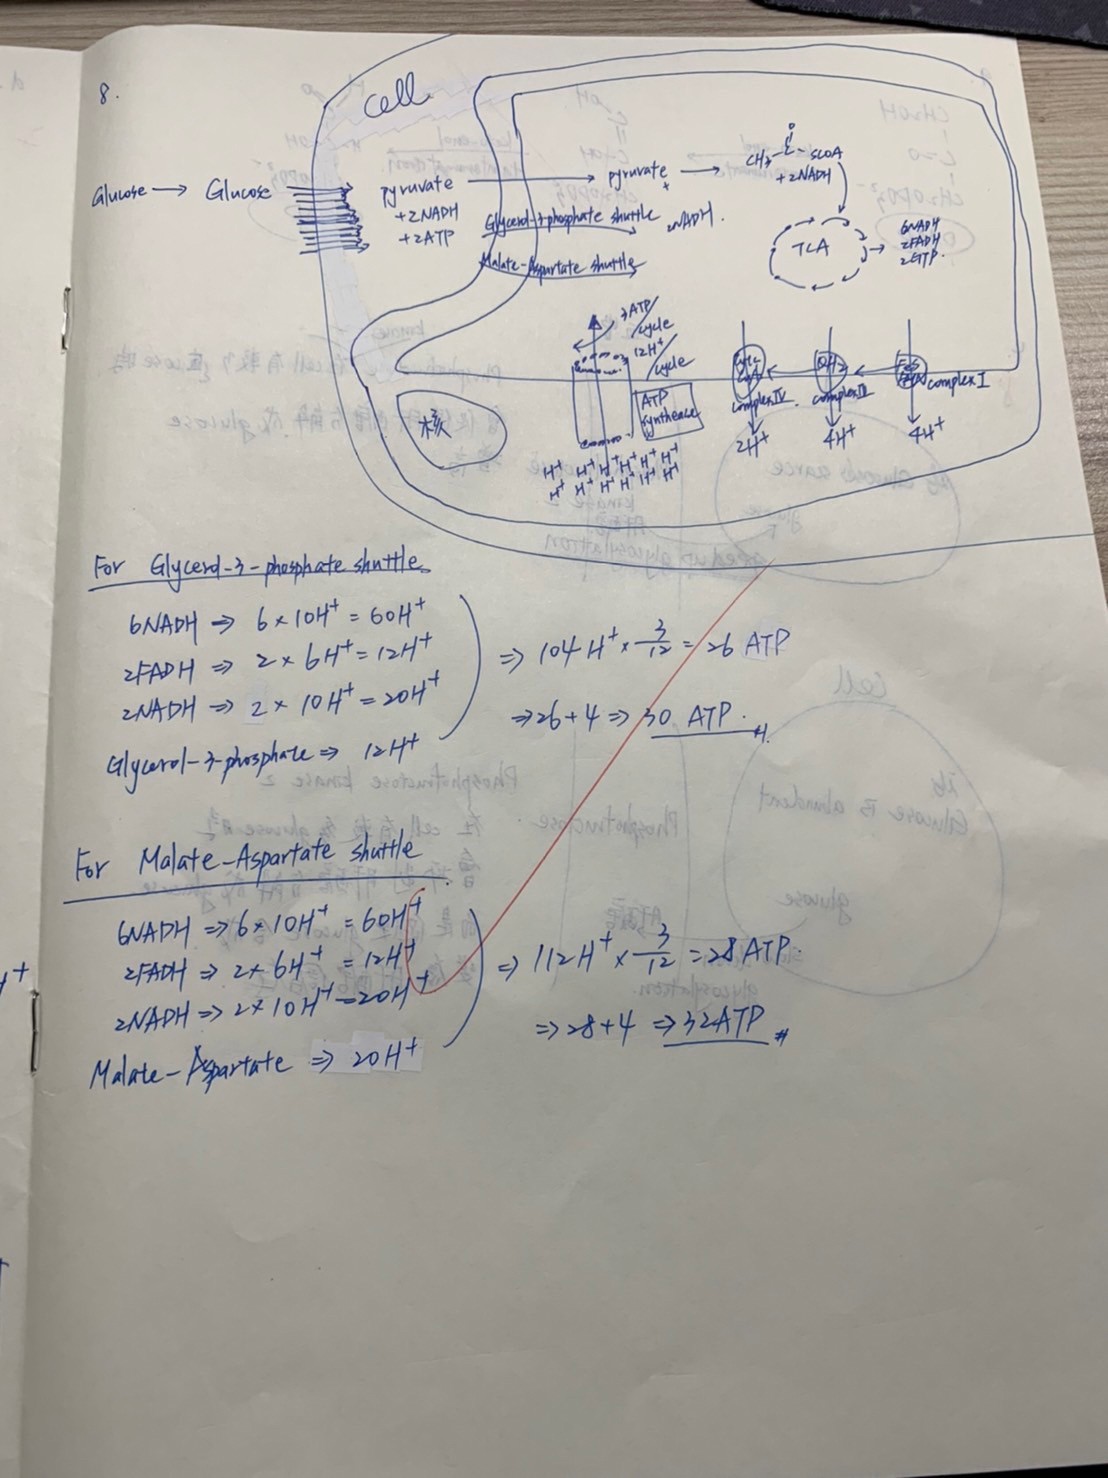 8.
cell
Glucose → Glucose
pyruvate → pyruvate →
+2NADH
+2ATP
+
2NADH.
CH3-C-SCOA
O
+2NADH
Glycerol-3-phosphate shuttle
Malate-Aspartate shuttle
TCA →
6NADH
2FADH
2GTP.
3ATP/
cycle
12H+/
cycle
ATP
synthease
核
complex IV.
complex III
complex I
QH2
2H+
4H+
4H+
H+ H+ H+ H+ H+ H+
H+ H+ H+ H+ H+ H+
For Glycerol-3-phosphate shuttle
6NADH ⇒ 6×10H+ = 60H+
2FADH ⇒ 2×6H+ = 12H+
2NADH ⇒ 2×10H+ = 20H+
Glycerol-3-phosphate ⇒ 12H+
⇒ 104H+ × 3/12 = 26 ATP
⇒ 26+4 ⇒ 30 ATP.
For Malate-Aspartate shuttle
6NADH ⇒ 6×10H+ = 60H+
2FADH ⇒ 2×6H+ = 12H+
2NADH ⇒ 2×10H+ = 20H+
Malate-Aspartate ⇒ 20H+
⇒ 112H+ × 3/12 = 28ATP.
⇒ 28+4 ⇒ 32ATP